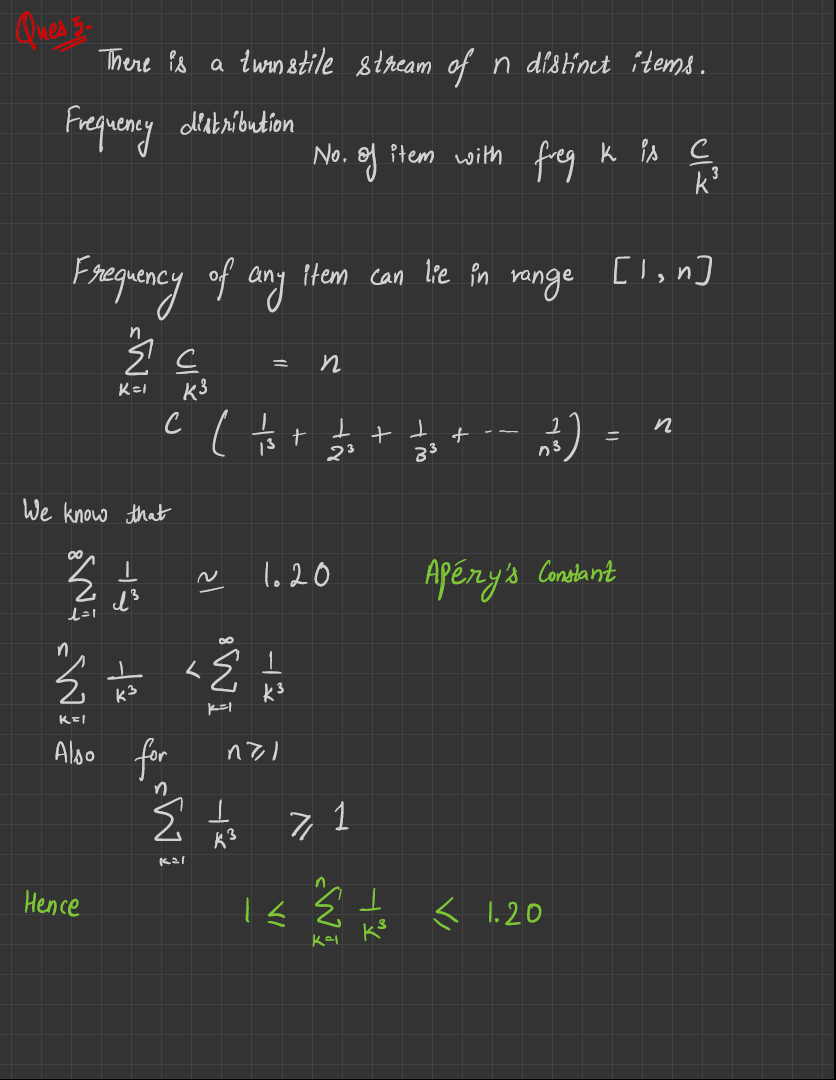 Ques 3.
There is a turnstile stream of n distinct items.
Frequency distribution
No. of item with freq k is C/k³
Frequency of any item can lie in range [1, n]
∑_{k=1}^{n} C/k³ = n
C ( 1/1³ + 1/2³ + 1/3³ + --- 1/n³ ) = n
We know that
∑_{l=1}^{∞} 1/l³ ≃ 1.20 Apéry's Constant
∑_{k=1}^{n} 1/k³ < ∑_{k=1}^{∞} 1/k³
Also for n ≥ 1
∑_{k=1}^{n} 1/k³ ≥ 1
Hence 1 ≤ ∑_{k=1}^{n} 1/k³ ≤ 1.20